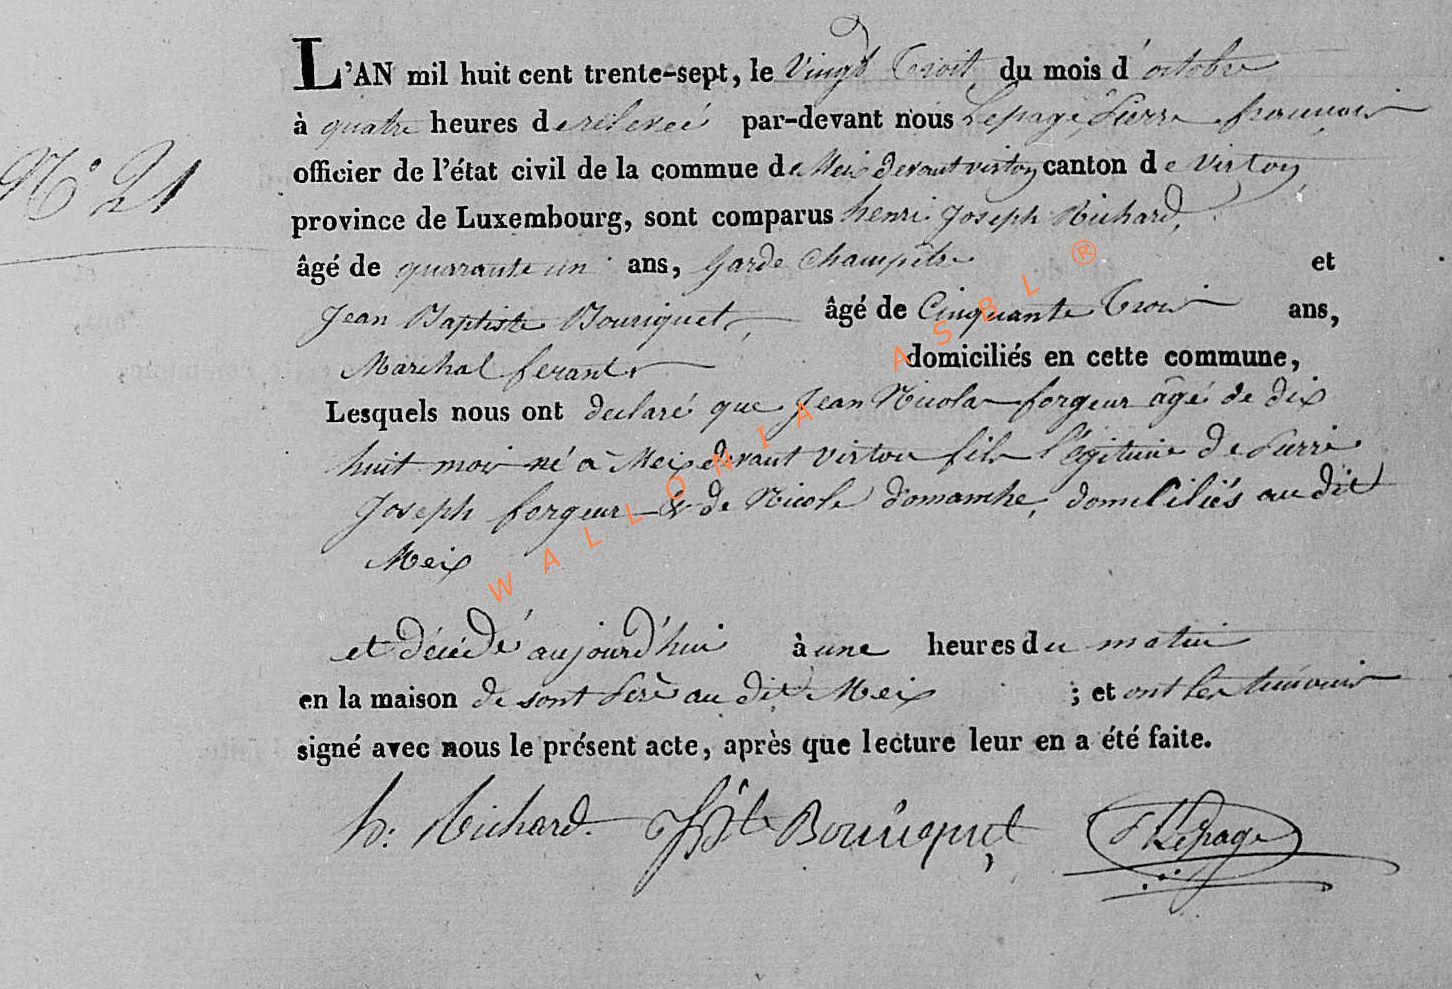 L'AN mil huit cent trente-sept, le Vingt Troit du mois d'octobre
à quatre heures de relevée par-devant nous Lepage Pierre françois
N° 21
officier de l'état civil de la commue de Meix devant virton canton de Virton
province de Luxembourg, sont comparus henri Joseph Richard,
âgé de quarante un ans, Garde Champêtre et
Jean Baptiste Bouriquet, âgé de Cinquante Trois ans,
Marchal ferant domiciliés en cette commune,
Lesquels nous ont declaré que Jean Nicolas forgeur âgé de dix
huit moi né à Meix devant virton fils légitime de Pierre
Joseph forgeur & de Nicole domanche, domiciliés au dit
Meix
et décédé aujourd'hui à une heures du matin
en la maison de sont Perè au dit Meix ; et ont les témoins
signé avec nous le présent acte, après que lecture leur en a été faite.
h. Richard. JBte Bouriquet PLepage
WALLONIA ASBL ®